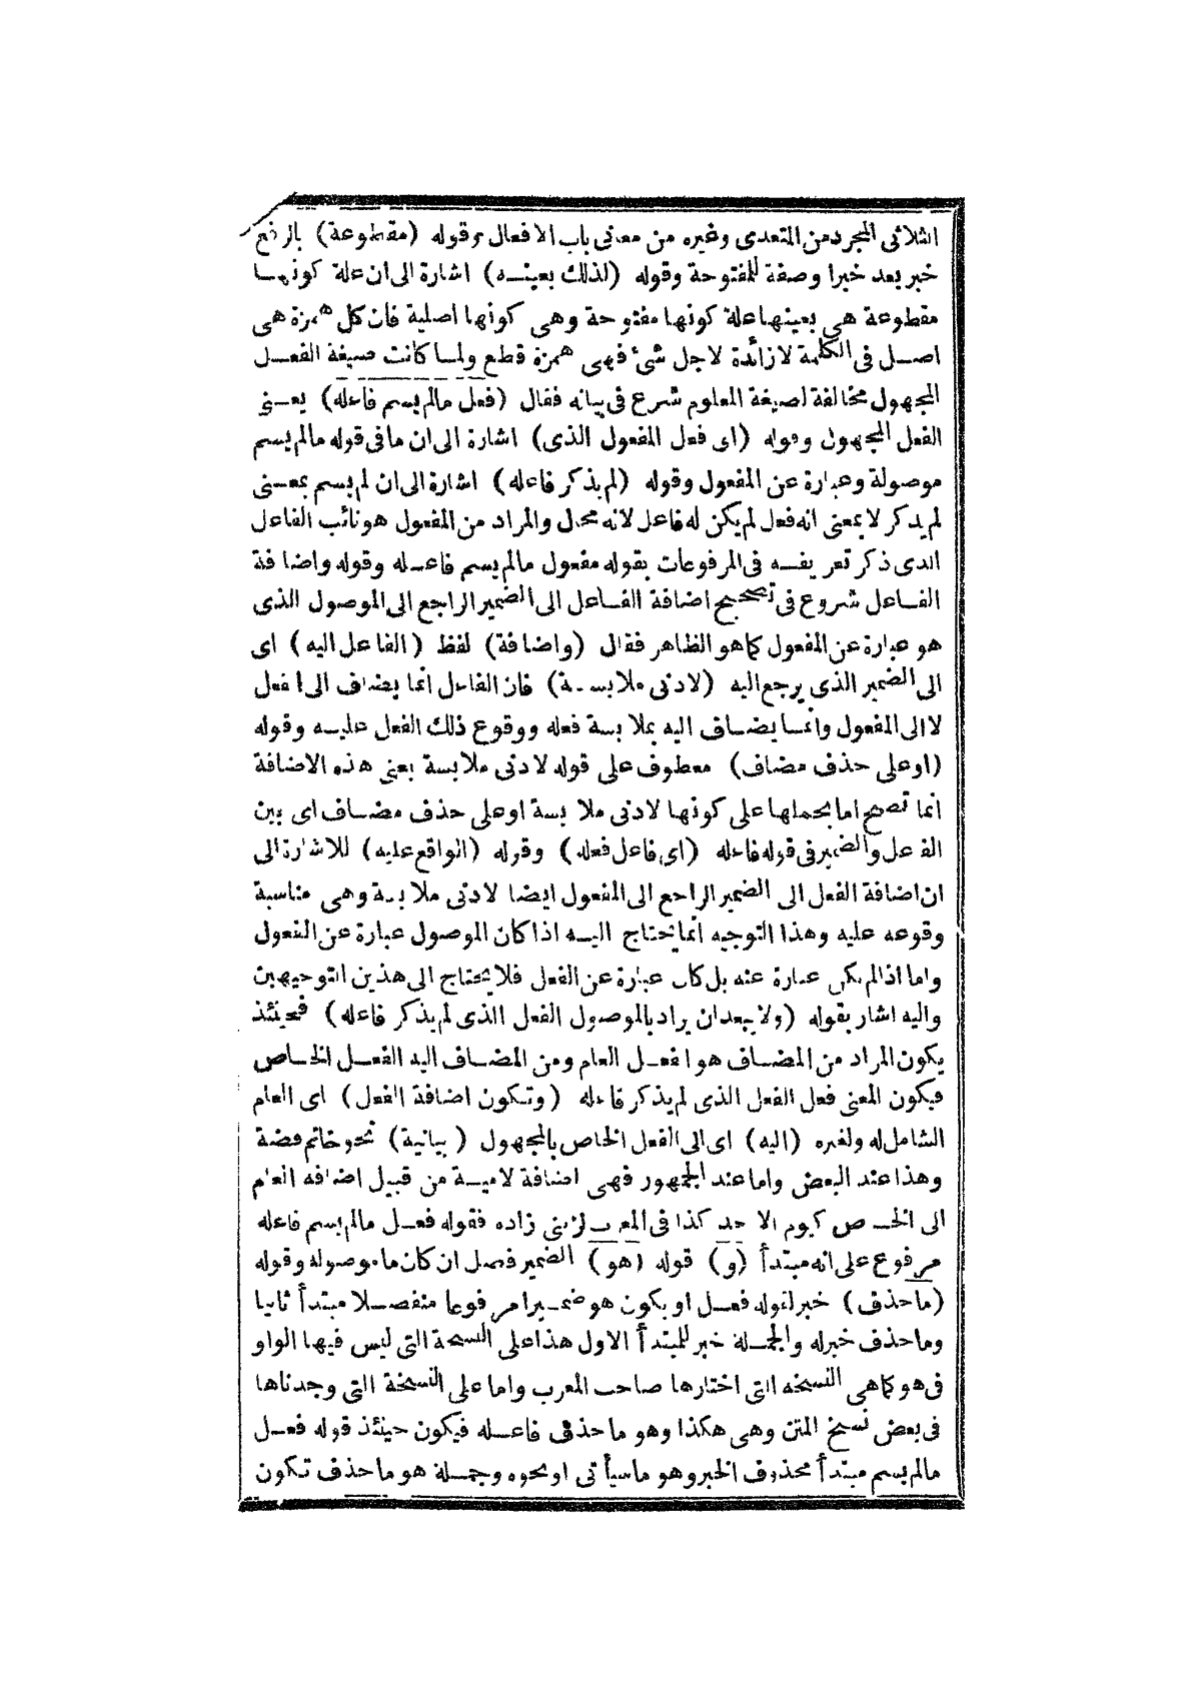 الثلاثى المجرد من المتعدى وغيره من معانى باب الافعال وقوله (مقطوعة) بالرفع
خبر بعد خبر او صفة للمفتوحة وقوله (لذلك بعينه) اشارة الى ان علة كونها
مقطوعة هى بعينها علة كونها مفتوحة وهى كونها اصلية فان كل همزة هى
اصل فى الكلمة لا زائدة لاجل شئ فهى همزة قطع ولما كانت صيغة الفعل
المجهول مخالفة لصيغة المعلوم شرع فى بيانه فقال (فعل مالم يسم فاعله) يعنى
الفعل المجهول وقوله (اى فعل المفعول الذى) اشارة الى ان ما فى قوله مالم يسم
موصولة وعبارة عن المفعول وقوله (لم يذكر فاعله) اشارة الى ان لم يسم بمعنى
لم يذكر لا بمعنى انه فعل لم يكن له فاعل لانه محال والمراد من المفعول هو نائب الفاعل
الذى ذكر تعريفه فى المرفوعات بقوله مفعول مالم يسم فاعله وقوله واضافة
الفاعل شروع فى تصحيح اضافة الفاعل الى الضمير الراجع الى الموصول الذى
هو عبارة عن المفعول كما هو الظاهر فقال (واضافة) لفظ (الفاعل اليه) اى
الى الضمير الذى يرجع اليه (لادنى ملابسة) فان الفاعل انما يضاف الى الفعل
لا الى المفعول وانما يضاف اليه بملابسة فعله ووقوع ذلك الفعل عليه وقوله
(او على حذف مضاف) معطوف على قوله لادنى ملابسة يعنى هذه الاضافة
انما تصح اما بحملها على كونها لادنى ملابسة او على حذف مضاف اى بين
الفاعل والضمير فى قوله فاعله (اى فاعل فعله) وقوله (الواقع عليه) للاشارة الى
ان اضافة الفعل الى الضمير الراجع الى المفعول ايضا لادنى ملابسة وهى مناسبة
وقوعه عليه وهذا التوجيه انما يحتاج اليه اذا كان الموصول عبارة عن المفعول
واما اذا لم يكن عبارة عنه بل كان عبارة عن الفعل فلا يحتاج الى هذين التوجيهين
واليه اشار بقوله (ولا يبعد ان يراد بالموصول الفعل الذى لم يذكر فاعله) فحينئذ
يكون المراد من المضاف هو الفعل العام ومن المضاف اليه الفعل الخاص
فيكون المعنى فعل الفعل الذى لم يذكر فاعله (وتكون اضافة الفعل) اى العام
الشامل له ولغيره (اليه) اى الى الفعل الخاص بالمجهول (بيانية) نحو خاتم فضة
وهذا عند البعض واما عند الجمهور فهى اضافة لامية من قبيل اضافة العام
الى الخاص كيوم الاحد كذا فى المعرب لزينى زاده فقوله فعل مالم يسم فاعله
مرفوع على انه مبتدأ (و) قوله (هو) الضمير فصل ان كان ما موصولة وقوله
(ما حذف) خبر لقوله فعل او يكون هو ضميرا مرفوعا منفصلا مبتدأ ثانيا
وما حذف خبره والجملة خبر للمبتدأ الاول هذا على النسخة التى ليس فيها الواو
فى هو كما هى النسخة التى اختارها صاحب المعرب واما على النسخة التى وجدناها
فى بعض نسخ المتن وهى هكذا وهو ما حذف فاعله فيكون حينئذ قوله فعل
مالم يسم مبتدأ محذوف الخبر وهو ما سيأتى او نحوه وجملة هو ما حذف تكون